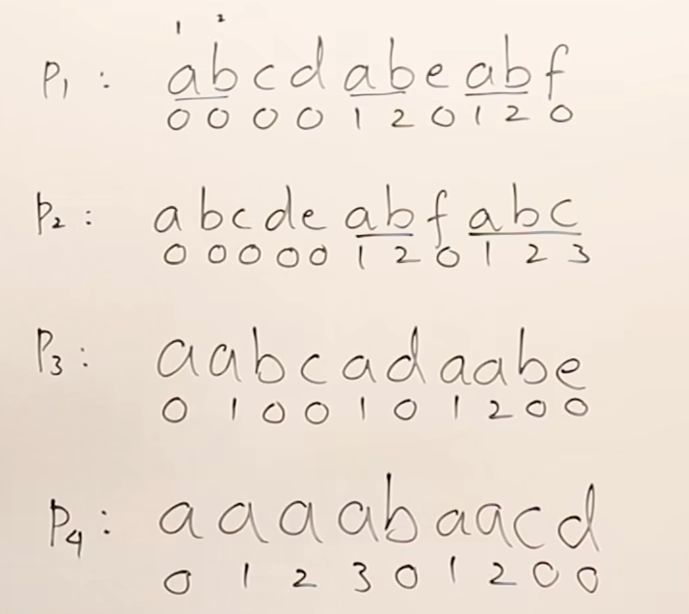 1 2
P1 : abcdabeabf
0 0 0 0 1 2 0 1 2 0
P2 : abcdeabfabc
0 0 0 0 0 1 2 0 1 2 3
P3 : aabcadaabe
0 1 0 0 1 0 1 2 0 0
P4 : aaaabaacd
0 1 2 3 0 1 2 0 0